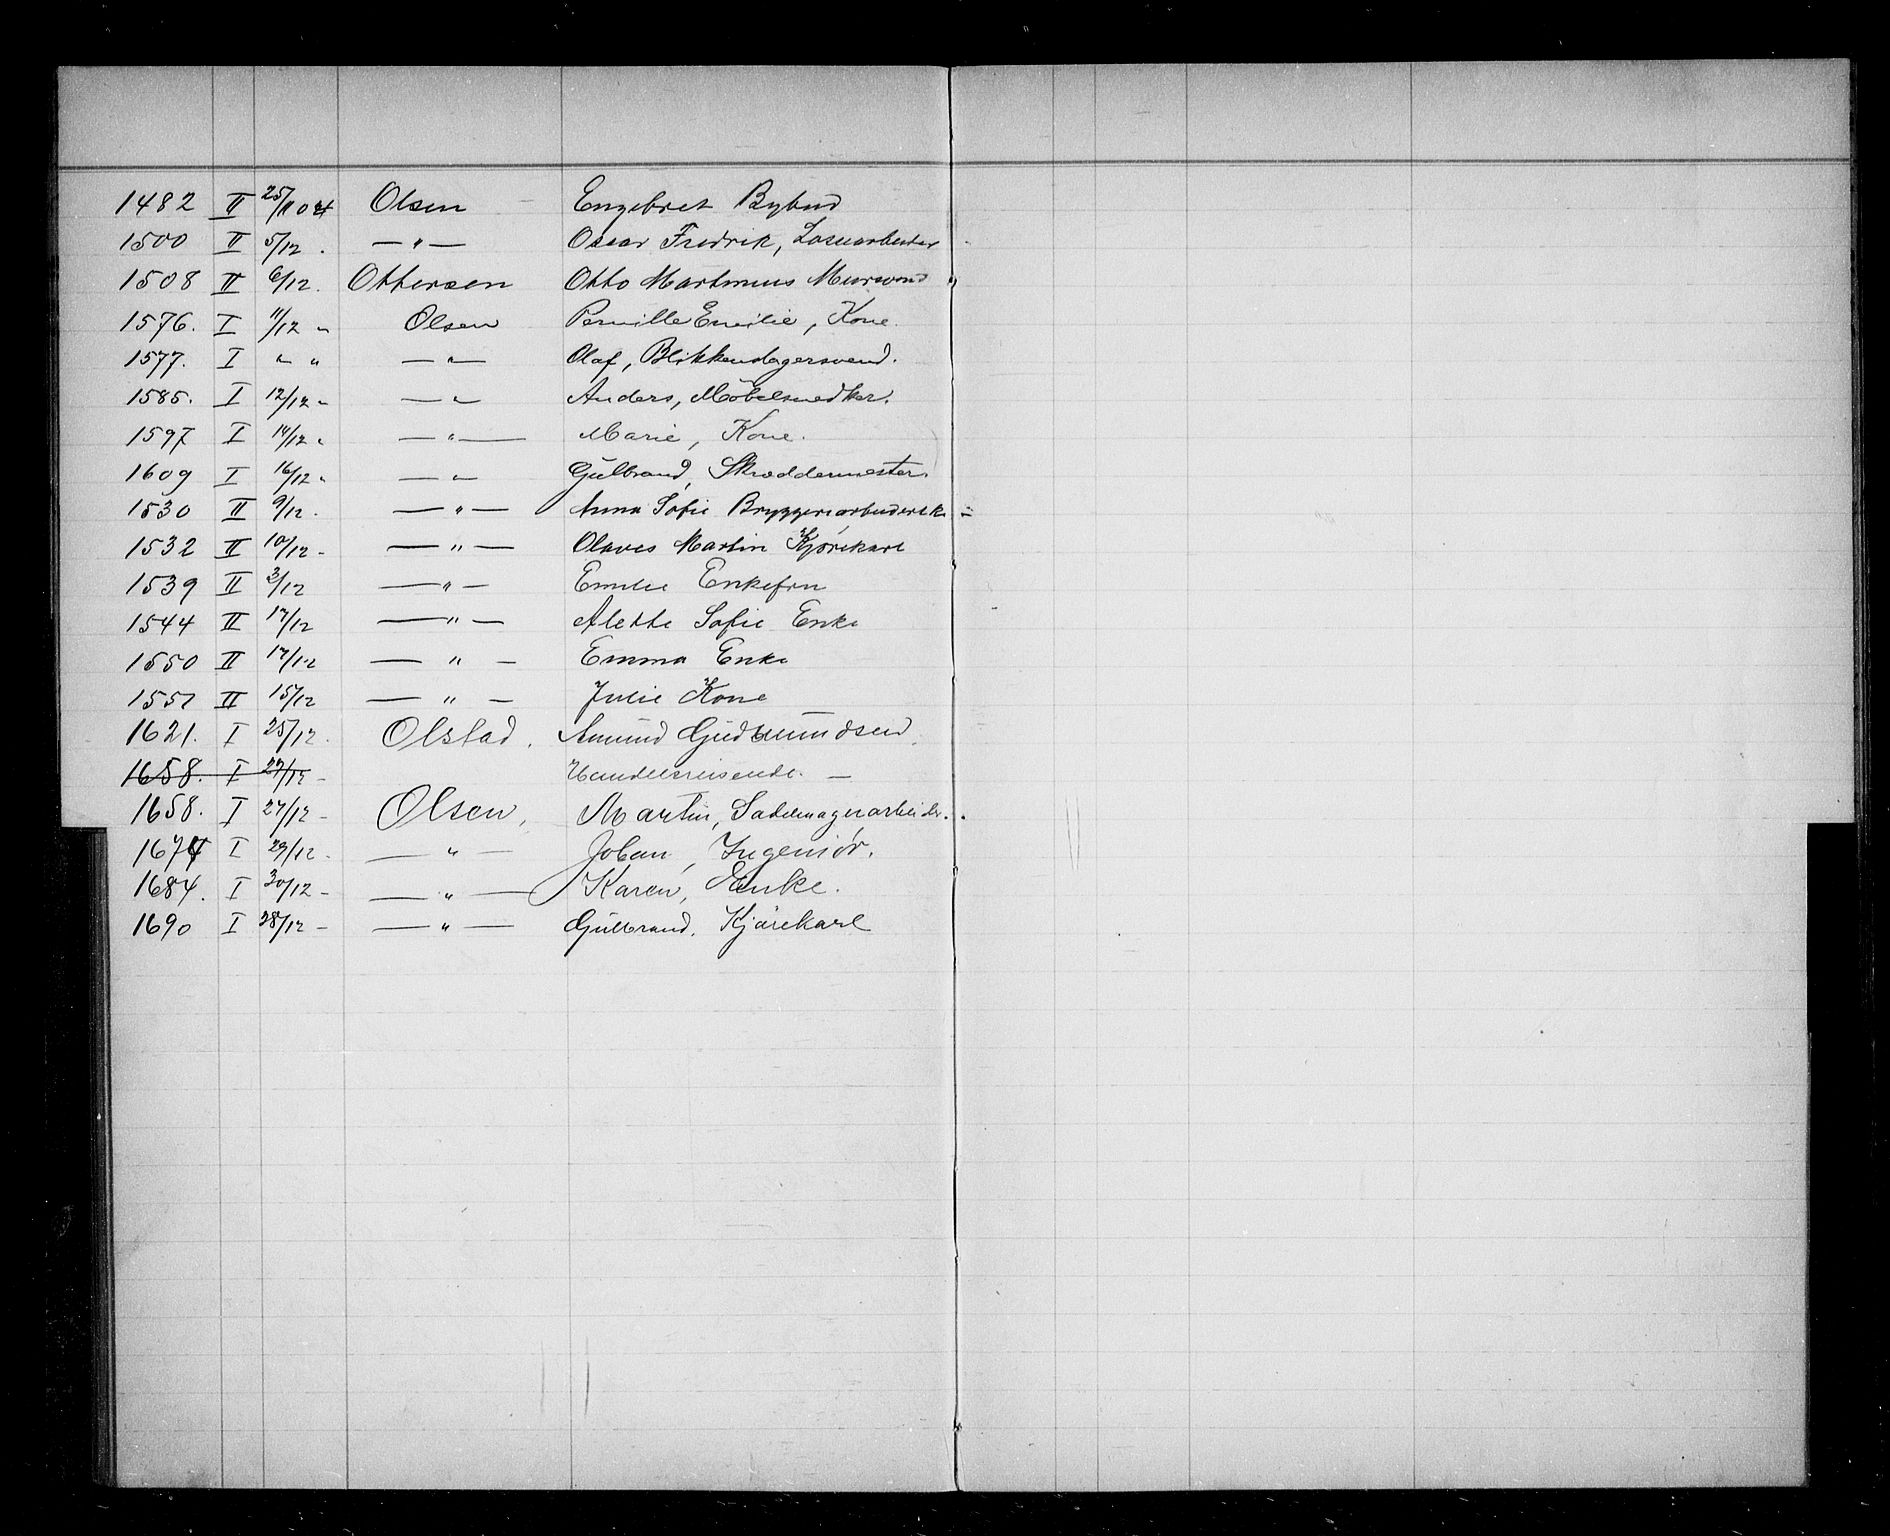 1482 II 25/11 04 Olsen Engebret Bybud
1500 II 5/12 . — " — Oscar Fredrik, Løsearbeider
1508 II 6/12 . Ottersen Otto Martinius Mursvend
1576. I 11/12 " Olsen Pernille Emilie, Kone.
1577. I " " — " — Olaf, Blikkenslagersvend.
1585. I 12/12 - — " — Anders, Möbelsnedker.
1597 I 14/12 " — " — Marie, Kone.
1609 I 16/12 " — " — Gulbrand, Skræddermester
1530 II 9/12 . — " — Anna Sofie Bryggeriarbeiderske
1532 II 10/12 - — " — Olaves Martin Kjörekarl
1539 II 3/12 — " — Emilie Enkefru
1544 II 17/12 — " — Alette Sofie Enke
1550 II 17/12 — " — Emma Enke
1551 II 15/12 — " — Julie Kone
1621. I 25/12 . Olstad. Amund Gudmundsen,
1658. I 27/12 - Handelsreisende. —
1658. I 27/12 - Olsen, Martin, Sadelmagerarbeider.
1674 I 29/12 . — " — Johan, Ingeniør.
1684. I 30/12 - — " — Karen, Enke.
1690 I 28/12 - — " — Gulbrand. Kjörekarl